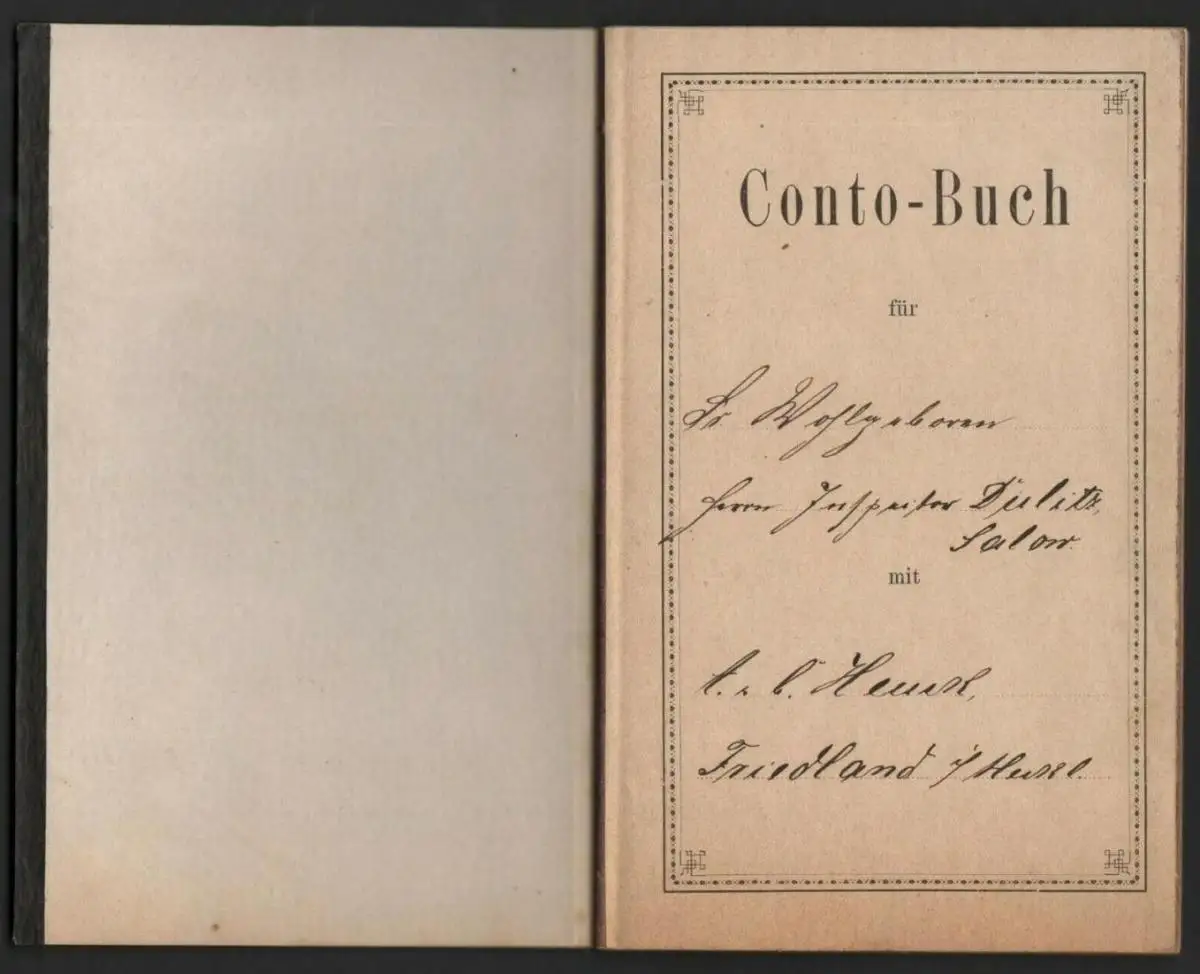 Conto-Buch
für
Sr. Wohlgeboren
Herrn Inspector Dulitz,
Salow.
mit
Friedland i/Meckl.